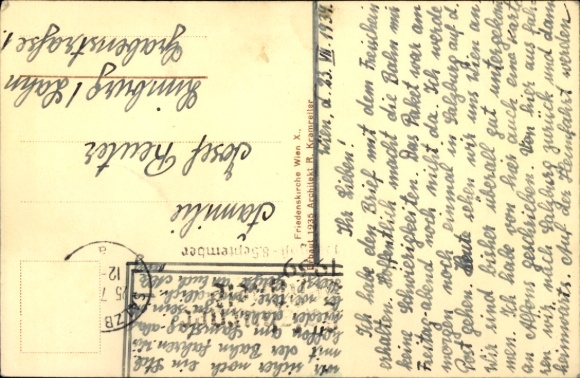 Wien, d. 23. VII. 1939.
Ihr Lieben!
Ich habe den Brief mit dem Fräulein
erhalten. Hoffentlich macht die Bahn mir
keine Schwierigkeiten. Das Paket war am
Freitag-abend noch nicht da. Ich werde
morgen noch einmal in Salzburg auf d.
Post gehen. Heute sehen wir uns Wien an.
Wir sind bisher überall gut untergekom-
men. Ich habe von hier auch eine Karte
an Alfons geschrieben. Von hier aus fah-
ren wir nach Salzburg zurück und dann
heimwärts. Auf der Heimfahrt werden
wir sicher noch ein Stück
mit der Bahn fahren. Wir
wollen am Samstag
wieder daheim sein.
Friedenskirche Wien X.,
erbaut 1935 Architekt R. Kramreiter
Familie
Josef Reuter
Limburg / Lahn
Grabenstraße 1.
8. September
1939
SALZB
25. 7.
12
a